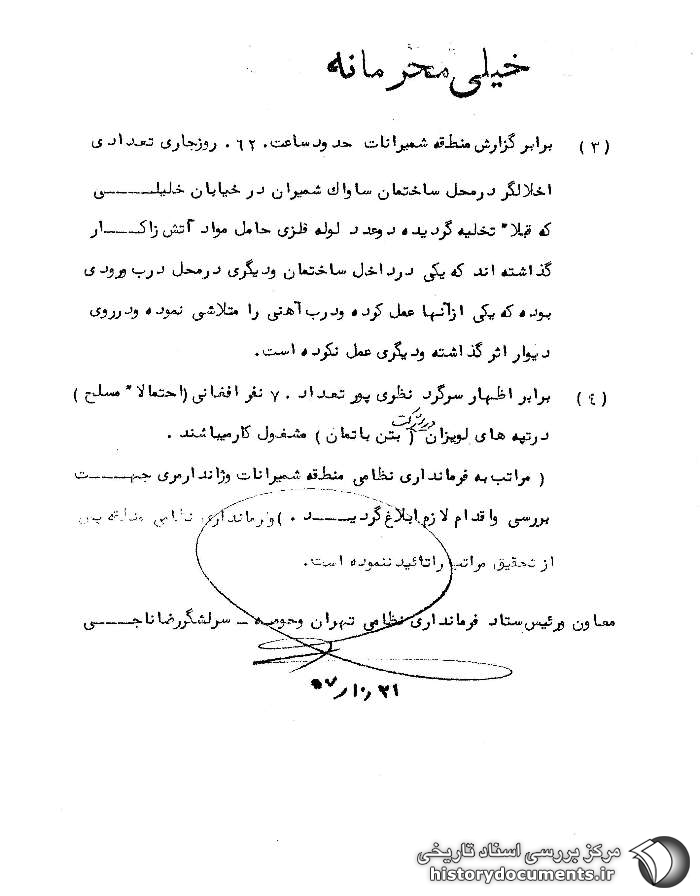 خیلی محرمانه
(۳) برابر گزارش منطقه شمیرانات حدود ساعت ۰۶۲۰ روز جاری تعدادی
اخلالگر در محل ساختمان ساواك شمیران در خیابان خلیلی
که قبلا" تخلیه گردیده دوعدد لوله فلزی حامل مواد آتش زا کار
گذاشته اند که یکی در داخل ساختمان ودیگری در محل درب ورودی
بوده که یکی ازآنها عمل کرده ودرب آهنی را متلاشی نموده ودرروی
دیوار اثر گذاشته ودیگری عمل نکرده است.
(٤) برابر اظهار سرگرد نظری پور تعداد ۷۰ نفر افغانی (احتمالا" مسلح)
درتپه های لویزان در شرکت (بتن باتمان) مشغول کار میباشند.
(مراتب به فرمانداری نظامی منطقه شمیرانات وژاندارمری جهت
بررسی واقدام لازم ابلاغ گردید.) وفرمانداری نظامی منطقه پس
از تحقیق مراتب راتائید ننموده است.
معاون ورئیس ستاد فرمانداری نظامی تهران وحومه - سرلشگر رضا ناجی
۵۷/۱۰/۲۱
مرکز بررسی اسناد تاریخی
historydocuments.ir